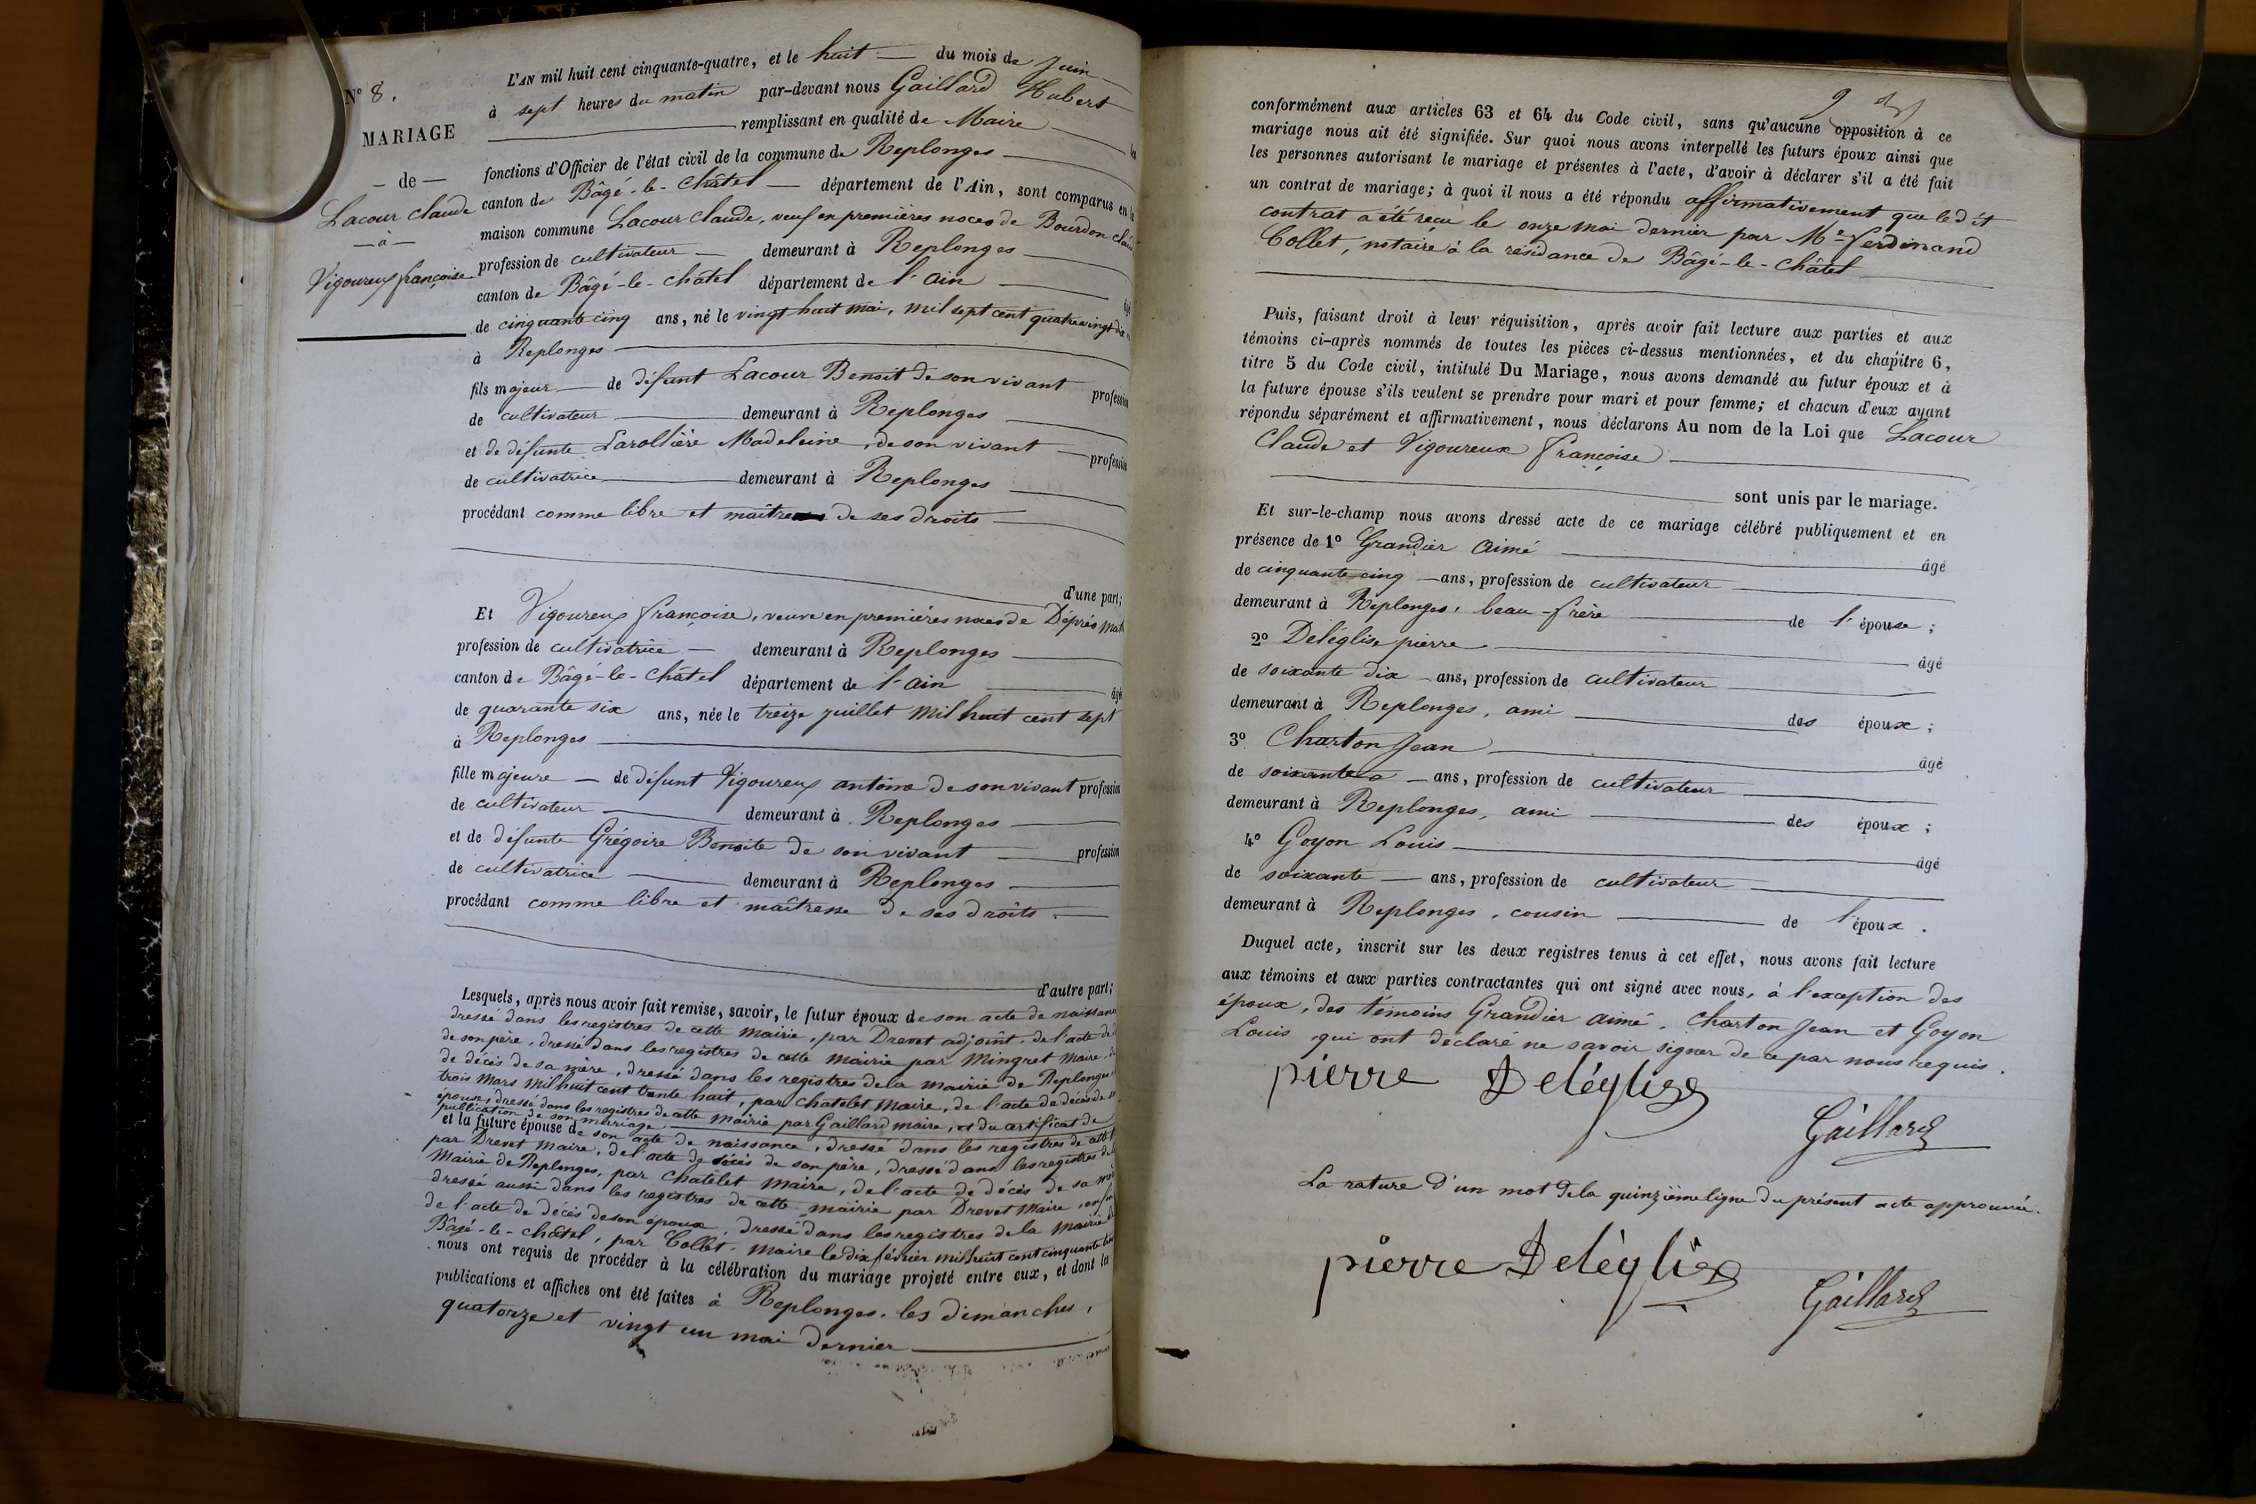 N° 8.
MARIAGE
— de —
Lacour Claude
— à —
Vigoureux françoise
L'AN mil huit cent cinquante-quatre, et le huit du mois de Juin
à sept heures du matin par-devant nous Gaillard Hubert
remplissant en qualité de Maire les
fonctions d'Officier de l'état civil de la commune de Replonges
canton de Bâgé-le-Châtel département de l'Ain, sont comparus en la
maison commune Lacour Claude, veuf en premières noces de Bourdon
profession de cultivateur demeurant à Replonges
canton de Bâgé-le-Châtel département de l'ain âgé
de cinquante cinq ans, né le vingt huit mai, mil sept cent quatre vingt dix
à Replonges
fils majeur de défunt Lacour Benoit de son vivant profession
de cultivateur demeurant à Replonges
et de défunte Larollière Madeleine, de son vivant profession
de cultivatrice demeurant à Replonges
procédant comme libre et maître de ses droits
d'une part;
Et Vigoureux françoise, veuve en premières noces de Déprés
profession de cultivatrice demeurant à Replonges
canton de Bâgé-le-Châtel département de l'ain âgé
de quarante six ans, née le treize juillet mil huit cent sept
à Replonges
fille majeure de défunt Vigoureux antoine de son vivant profession
de cultivateur demeurant à Replonges
et de défunte Grégoire Benoite de son vivant profession
de cultivatrice demeurant à Replonges
procédant comme libre et maîtresse de ses droits.
d'autre part;
Lesquels, après nous avoir fait remise, savoir, le futur époux de son acte de naissance
dressé dans les registres de cette mairie, par Drevet adjoint, de l'acte de
de son père, dressé dans les registres de cette mairie par Mingret maire,
de décès de sa mère, dressé dans les registres de la mairie de Replonges
trois mars mil huit cent trente huit, par Chatelet maire, de l'acte de décès de
épouse, dressé dans les registres de cette mairie par Gaillard maire, et du certificat de
publication de son mariage
et la future épouse de son acte de naissance, dressé dans les registres de cette
par Drevet maire, de l'acte de décès de son père, dressé dans les registres de
mairie de Replonges, par Chatelet maire, de l'acte de décès de sa mère
dressé aussi dans les registres de cette mairie par Drevet maire,
de l'acte de décès de son époux, dressé dans les registres de la mairie
Bâgé-le-Châtel, par Collet, maire le dix février mil huit cent cinquante
nous ont requis de procéder à la célébration du mariage projeté entre eux, et dont les
publications et affiches ont été faites à Replonges, les dimanches,
quatorze et vingt un mai dernier
9
conformément aux articles 63 et 64 du Code civil, sans qu'aucune opposition à ce
mariage nous ait été signifiée. Sur quoi nous avons interpellé les futurs époux ainsi que
les personnes autorisant le mariage et présentes à l'acte, d'avoir à déclarer s'il a été fait
un contrat de mariage; à quoi il nous a été répondu affirmativement que le dit
contrat a été reçu le onze mai dernier par Me Ferdinand
Collet, notaire à la résidance de Bâgé-le-Châtel
Puis, faisant droit à leur réquisition, après avoir fait lecture aux parties et aux
témoins ci-après nommés de toutes les pièces ci-dessus mentionnées, et du chapitre 6,
titre 5 du Code civil, intitulé Du Mariage, nous avons demandé au futur époux et à
la future épouse s'ils veulent se prendre pour mari et pour femme; et chacun d'eux ayant
répondu séparément et affirmativement, nous déclarons Au nom de la Loi que Lacour
Claude et Vigoureux françoise
sont unis par le mariage.
Et sur-le-champ nous avons dressé acte de ce mariage célébré publiquement et en
présence de 1° Grandier Aimé âgé
de cinquante-cinq ans, profession de cultivateur
demeurant à Replonges, beau-frère de l'épouse;
2° Deléglise pierre âgé
de soixante dix ans, profession de cultivateur
demeurant à Replonges, ami des époux;
3° Charton Jean âgé
de soixante ans, profession de cultivateur
demeurant à Replonges, ami des époux;
4° Goyon Louis âgé
de soixante ans, profession de cultivateur
demeurant à Replonges, cousin de l'époux.
Duquel acte, inscrit sur les deux registres tenus à cet effet, nous avons fait lecture
aux témoins et aux parties contractantes qui ont signé avec nous, à l'exception des
époux, des témoins Grandier aimé, Charton Jean et Goyon
Louis qui ont déclaré ne savoir signer de ce par nous requis.
pierre Deléglize
Gaillard
La rature d'un mot de la quinzième ligne du présent acte approuvée.
pierre Deléglize
Gaillard